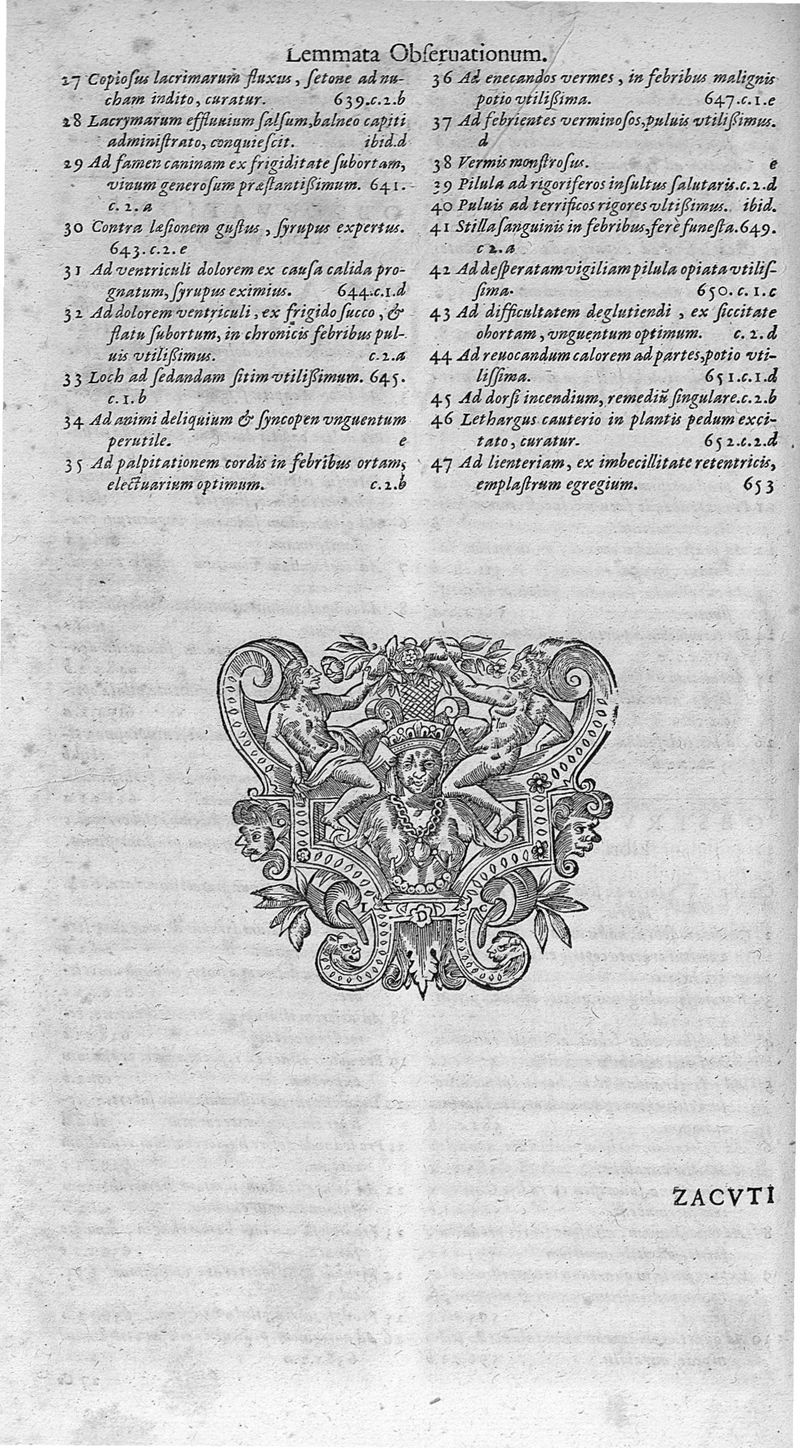 Lemmata Obſeruationum.
27 Copioſus lacrimarum fluxus, ſetone ad nu-
cham indito, curatur. 639.c.2.b
28 Lacrymarum effluuium ſalſum, balneo capiti
adminiſtrato, conquieſcit. ibid.d
29 Ad famen caninam ex frigiditate ſubortam,
vinum generoſum præſtantißimum. 641.
c. 2. a
30 Contra læſionem guſtus, ſyrupus expertus.
643.c.2.e
31 Ad ventriculi dolorem ex cauſa calida pro-
gnatum, ſyrupus eximius. 644.c.1.d
32 Ad dolorem ventriculi, ex frigido ſucco, &
flatu ſubortum, in chronicis febribus pul-
uis vtilißimus. c.2.a
33 Loch ad ſedandam ſitim vtilißimum. 645.
c.1.b
34 Ad animi deliquium & ſyncopen vnguentum
perutile. e
35 Ad palpitationem cordis in febribus ortam,
electuarium optimum. c.2.b
36 Ad enecandos vermes, in febribus malignis
potio vtilißima. 647.c.1.e
37 Ad febrientes verminoſos, puluis vtilißimus.
d
38 Vermis monſtroſus. e
39 Pilula ad rigoriferos inſultus ſalutaris.c.2.d
40 Puluis ad terrificos rigores vltißimus. ibid.
41 Stilla ſanguinis in febribus, ferè funeſta.649.
c 2.a
42 Ad deſperatam vigiliam pilula opiata vtiliſ-
ſima. 650.c.1.c
43 Ad difficultatem deglutiendi, ex ſiccitate
obortam, vnguentum optimum. c.2.d
44 Ad reuocandum calorem ad partes, potio vti-
liſſima. 651.c.1.d
45 Ad dorſi incendium, remediũ ſingulare.c.2.b
46 Lethargus cauterio in plantis pedum exci-
tato, curatur. 652.c.2.d
47 Ad lienteriam, ex imbecillitate retentricis,
emplaſtrum egregium. 653
I D C
ZACVTI